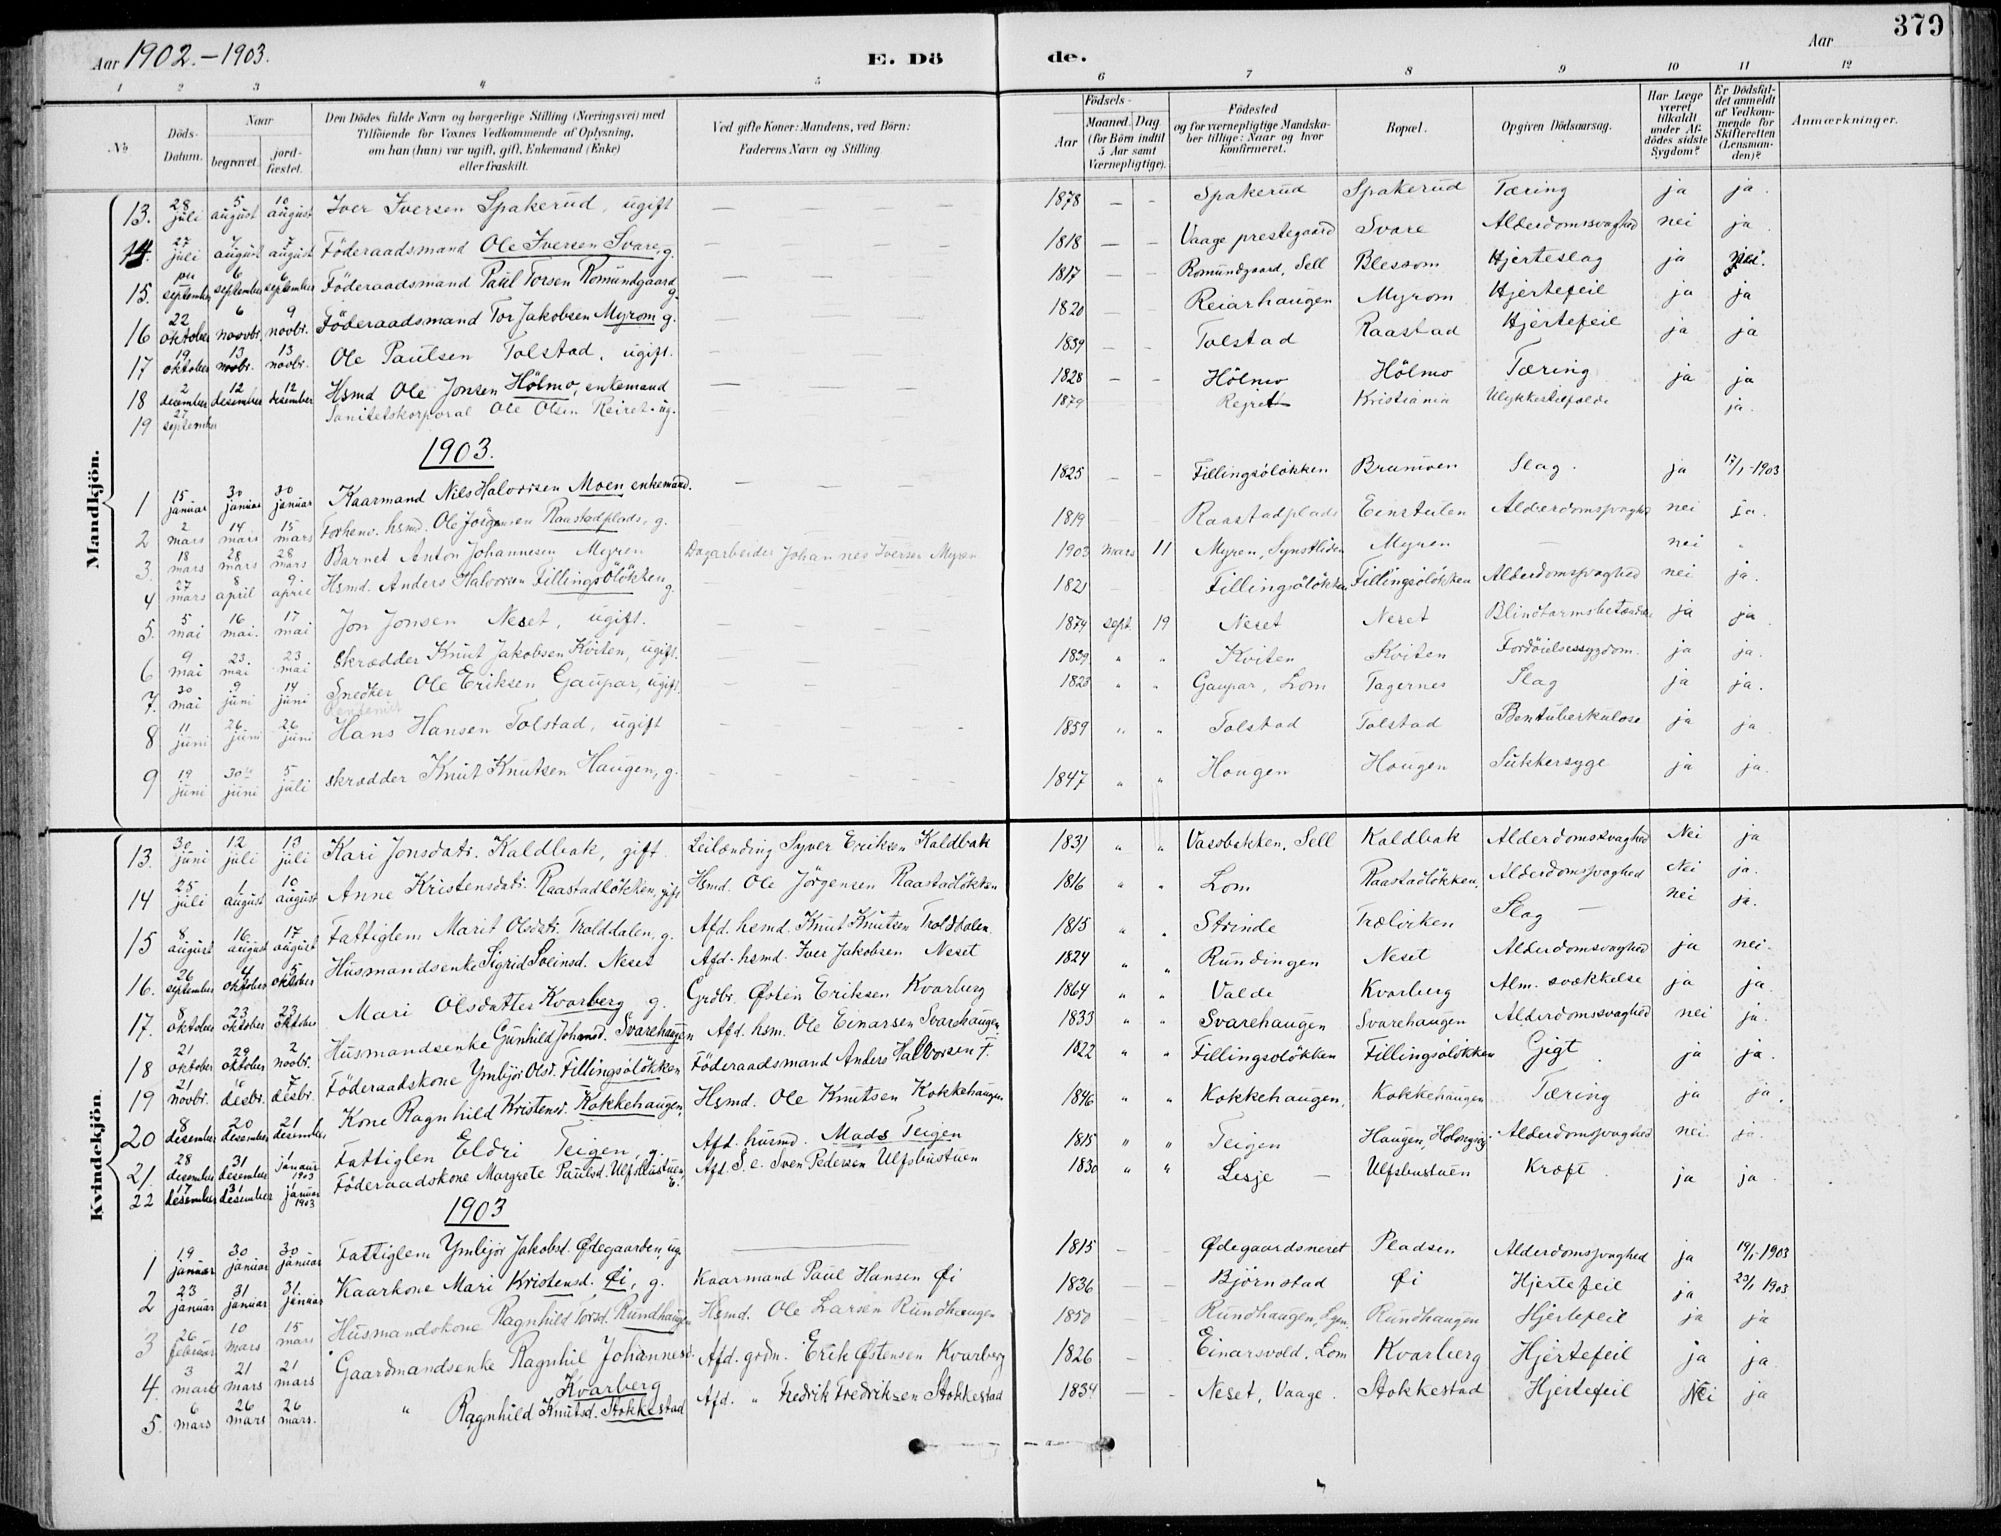 Aar 1902.-1903. E. Dö de. Aar 379
1 2 3 4 5 6 7 8 9 10 11 12
No Döds-Datum. Naar begravet. jord-fæstet. Den Dödes fulde Navn og borgerlige Stilling (Næringsvei) med Tilföiende for Voxnes Vedkommende af Oplysning, om han (hun) var ugift, gift, Enkemand (Enke) eller fraskilt. Ved gifte Koner: Mandens, ved Börn: Faderens Navn og Stilling Födsels- Aar Maaned. Dag (for Börn indtil 5 Aar samt Værnepligtige). Födested og for værnepligtige Mandskaber tillige: Naar og hvor konfirmeret. Bopæl. Opgiven Dödsaarsag. Har Læge været tilkaldt under Afdödes sidste Sygdom? Er Dödsfaldet anmeldt af Vedkommende for Skifteretten (Lensmanden)? Anmærkninger.
Mandkjön.
13. 28 juli 5 august 10 august Iver Iversen Spakerud, ugift — — — 1878 — - Spakerud Spakerud Tæring ja ja.
14. 27 juli 7 august 7 august Föderaadsmand Ole Iversen Svare, g. — — — 1818 — — Vaage prestegaard Svare Alderdomssvaghed nei ja.
15. september 6 september 6 september Föderaadsmand Paul Torsen Romundgaard g. — — — 1817 — — Romundgaard, Sell Blessom Hjerteslag ja nei.
16 22 oktober 6 noovbr. 9 noovbr. Föderaadsmand Tor Jakobsen Myrom g. — — — 1820 — — Reiarhaugen Myrom Hjertefeil ja ja
17 19 oktober 13 novbr. 13 noovbr. Ole Paulsen Tolstad, ugift. — — — 1839 — — Tolstad Raastad Hjertefeil ja ja
18 2 december 12 desember 12 desember Hsmd Ole Jonsen Hölmo, enkemand — — — 1828 — - Hölmo Hölmo Tæring ja ja
19 27 september Sanitetskorporal Ole Olsen Reiret. ug. — — — 1879 — — Rejret Kristiania Ulykkestilfælde ja.
1903.
1 15 januar 30 januar 30 januar Kaarmand Nils Halvorsen Moen enkemand. — — — 1825 — - Fillingsölökken Brumoen Slag. ja 17/1-1903
2 2 mars 14 mars 15 mars Forhenv. hsmd. Ole Jörgensen Raastadplads, g. — — — 1819 Raastadplads Einstulen Alderdomssvaghed nei ja.
3. 18 mars 28 mars 28 mars Barnet Anton Johannesen Myren Dagarbeider Johannes Iversen Myren 1903 mars 11 Myren, Synstliden Myren — nei "
4 27 mars 8 april 9 april Hsmd. Anders Halvorsen Fillingsölökken g. — — — 1821 - - Fillingsölökken Fillingsölökken Alderdomssvaghed nei ja.
5. 5 mai 16 mai. 17 mai Jon Jonsen Neset, ugift. — — — 1874 sept. 19 Neset Neset Blindtarmsbetændelse ja ja
6 9 mai 23. mai 23 mai Skrædder Knut Jakobsen Kviten, ugift. — — — 1839 " " Kviten Kviten Fordöielsessygdom. ja ja.
7. 30 mai 9 juni 14 juni Snedker Ole Eriksen Gaupar, ugift. — — 1823 " " Gaupar, Lom Tagernes Slag ja ja.
8 11 juni 26 juni 26 juni Hans Hansen Tolstad, ugift — — - 1859 " " Tolstad Tolstad Bentuberkulose ja ja
9 19 juni 30 juni 5 juli Skrædder Knut Knutsen Haugen, g. - — — 1847 " " Hougen Hougen Sukkersyge ja ja.
Kvindekjön.
13. 30 juni 12 juli 13 juli Kari Jonsdatr. Kaldbak, gift. Leilænding Syver Eriksen Kaldbak 1831 " " Vassbakken, Sell Kaldbak Alderdomssvaghed Nei ja
14 25 juli 1 august 10 august Anne Kristensdatr. Raastadlökken, gift Hsmd. Ole Jörgensen Raastadlökken 1816 " " Lom Raastadlökken, Alderdomssvaghed Nei ja.
15 8 august 16 august 17 august Fattiglem Marit Olsdtr. Trolddalen, g. Afd. hsmd. Knut Knutsen Trolddalen. 1815 " " Strinde Trælviken Slag — nei ja.
16. 26 september 4 oktober 5 oktober Husmandsenke Sigrid Solinsd. Neset Afd. hsmd. Iver Jakobsen Neset 1824 " " Rundingen Neset Alderdomssvaghed ja nei.
17. 8 oktober 23 oktober 23 oktober Mari Olsdatter Kvarberg g. Grdbr. Østen Eriksen Kvarberg 1864 " " Valde Kvarberg Alm. svækkelse ja ja.
18 21 oktober 29 oktober 2 noovbr. Husmandsenke Gunhild Johansd. Svarehaugen Afd. hsm. Ole Einarsen Svarehaugen 1833 " " Svarehaugen Svarehaugen Alderdomssvaghed nei ja.
19 21 novbr. 6 desbr. 7 desbr. Föderaadskone Ymbjör Olsd. Fillingsölökken Föderaadsmand Anders Halvorsen F. 1822 " " Fillingsolökken Fillingsölökken Gigt ja ja.
20 8 desember 20 desember 21 desember Kone Ragnhild Kristensd. Kokkehaugen, Hsmd. Ole Knutsen Kokkehaugen 1846 " " Kokkehaugen, Kokkehaugen Tæring ja ja.
21. 28 desember 31 desember januar 1903 Fattiglem Eldri Teigen, g. Afd. husmd. Mads Teigen 1815 " " Teigen Haugen, Alderdomssvaghed nei ja.
22 17 desember 31 desember januar 1903 Föderaadskone Margrete Paulsd. Ulfsbustuen, e. Afd. S. e. Sven Pedersen Ulfsbustuen 1830 " " Lesje — Ulfsbustuen Kræft ja ja.
1903
1 19 januar 30 januar 30 januar Fattiglem Ymbjör Jakobsd. Ødegaarden, ug. ——— 1815 — — Ødegaardsneret Pladsen Alderdomssvaghed ja 19/1-1903
2 23 januar 31 januar 31 januar Kaarkone Mari Kristensd. Øi, g. Kaarmand Paul Hansen Øi 1836 — — Björnstad Øi Hjertefeil ja 23/1 1903
3 26 februar 10 mars 15 mars Husmandskone Ragnhild Torsd. Rundhaugen Hsmd. Ole Larsen Rundhaugen 1850 — — Rundhaugen, Rundhaugen Hjertefeil ja ja
4. 3 mars 21 mars 21 mars Gaardmandsenke Ragnhil Johannesd. Kvarberg Afd. grdm. Erik Østensen Kvarberg 1826 — - Einarsvold, Lom Kvarberg Hjertefeil ja ja.
5. 6 mars 26 mars 26 mars. " Ragnhild Knutsd. Stokkestad Afd. " Fredrik Fredriksen Stokkestad 1834 — - Neset, Vaage. Stokkestad Hjertefeil Nei ja